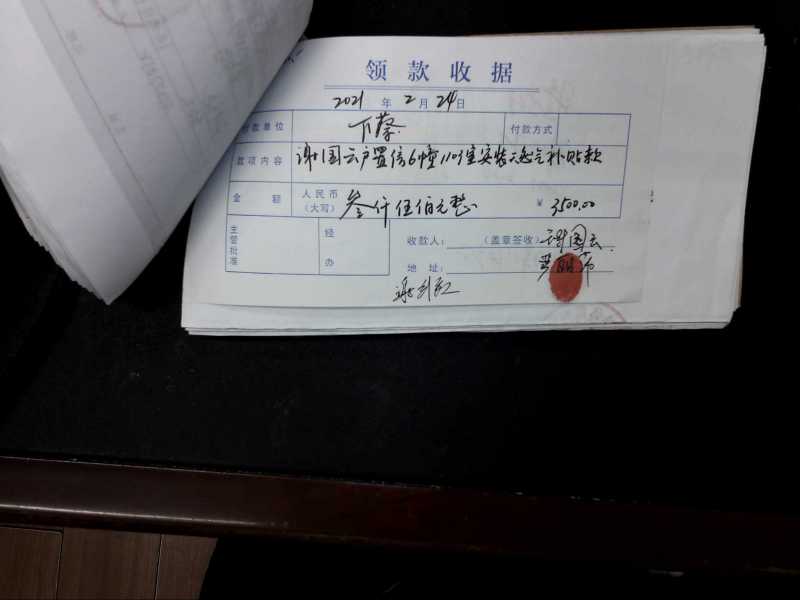 领款收据
2021年2月24日
付款单位 下蔡 付款方式
款项内容 谢国云户置信6幢1101室安装天然气补贴款
金额 人民币(大写) 叁仟伍佰元整 ¥ 3500.00
主管批准 经办 收款人: (盖章签收) 谢国云
地址: